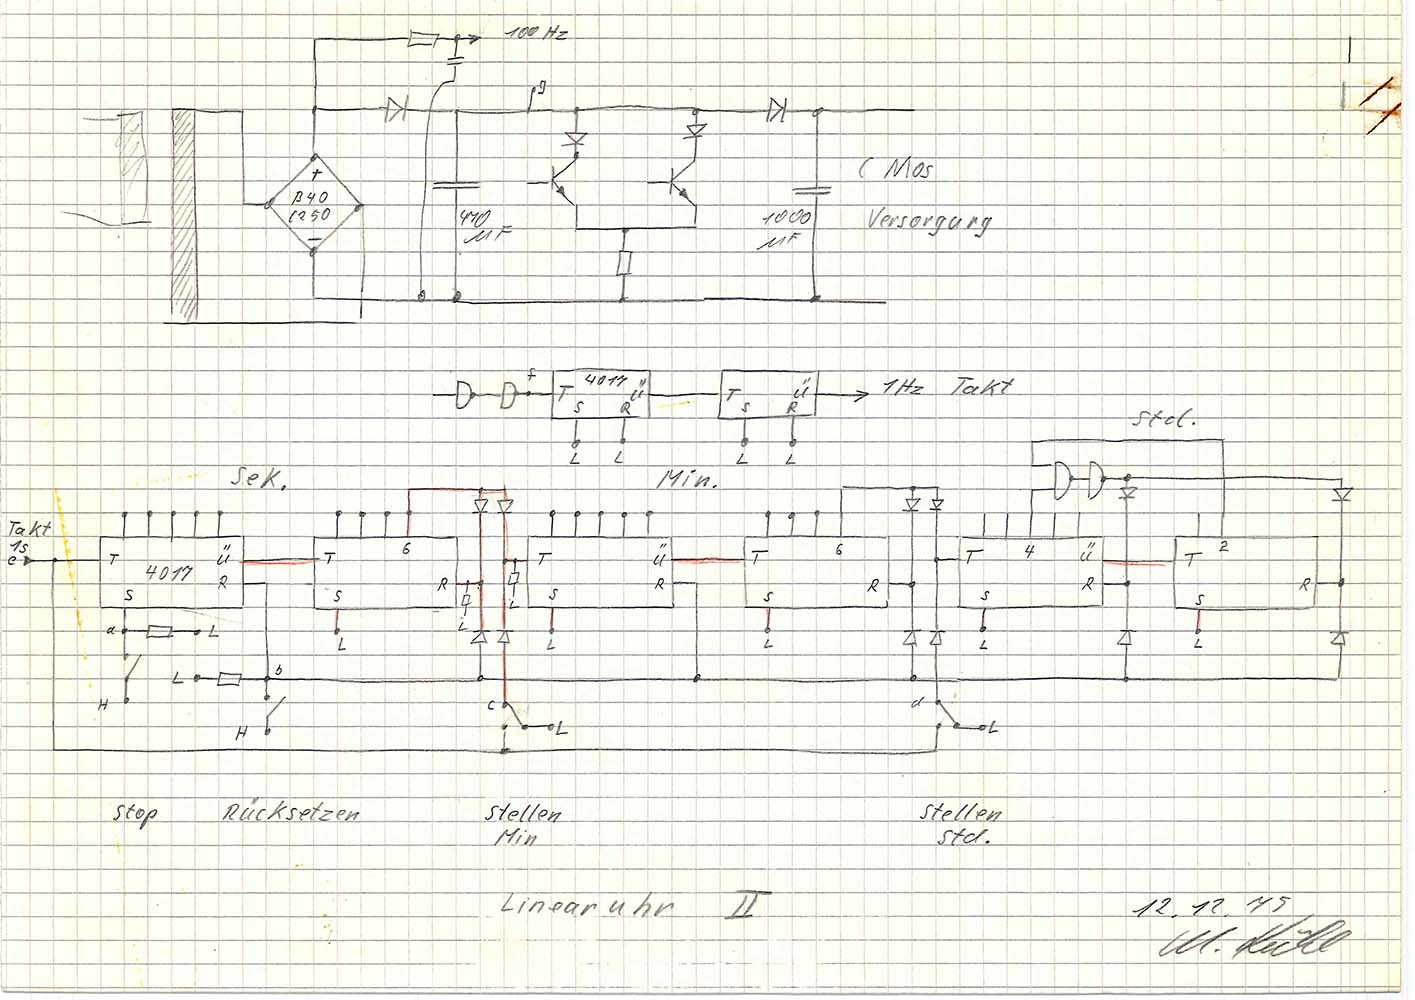 100 Hz
g
+
B40
C250
–
470
µF
1000
µF
C Mos
Versorgung
f
T 4017 Ü
S R
L L
T Ü
S R
L L
1Hz Takt
Std.
Sek.
Min.
Takt
1s
e
T Ü
4017 R
S
T 6
R
S
T Ü
R
S
T 6
R
S
T 4 Ü
R
S
T 2
R
S
a L
L
L
L
L
L
L
L
L b
H
H
c L
d L
Stop Rücksetzen Stellen Min Stellen Std.
Linearuhr II
12.12.75